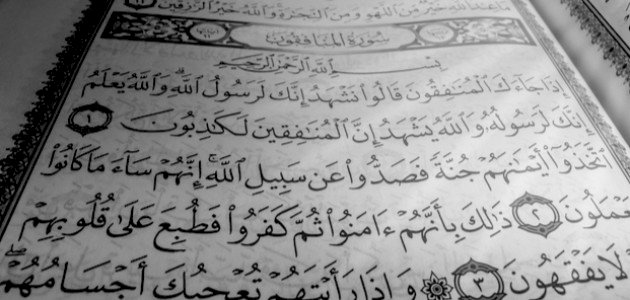 مَا عِندَ ٱللَّهِ خَيْرٌ مِّنَ ٱللَّهْوِ وَمِنَ ٱلتِّجَٰرَةِ وَٱللَّهُ خَيْرُ ٱلرَّٰزِقِينَ
سُورَةُ المُنَافِقُونَ
بِسْمِ ٱللَّهِ ٱلرَّحْمَٰنِ ٱلرَّحِيمِ
إِذَا جَآءَكَ ٱلْمُنَٰفِقُونَ قَالُوا۟ نَشْهَدُ إِنَّكَ لَرَسُولُ ٱللَّهِ ۗ وَٱللَّهُ يَعْلَمُ
إِنَّكَ لَرَسُولُهُۥ وَٱللَّهُ يَشْهَدُ إِنَّ ٱلْمُنَٰفِقِينَ لَكَٰذِبُونَ ١
ٱتَّخَذُوٓا۟ أَيْمَٰنَهُمْ جُنَّةً فَصَدُّوا۟ عَن سَبِيلِ ٱللَّهِ ۚ إِنَّهُمْ سَآءَ مَا كَانُوا۟
عْمَلُونَ ٢ ذَٰلِكَ بِأَنَّهُمْ ءَامَنُوا۟ ثُمَّ كَفَرُوا۟ فَطُبِعَ عَلَىٰ قُلُوبِهِمْ
لَا يَفْقَهُونَ ٣ ۞ وَإِذَا رَأَيْتَهُمْ تُعْجِبُكَ أَجْسَامُهُمْ ۖ